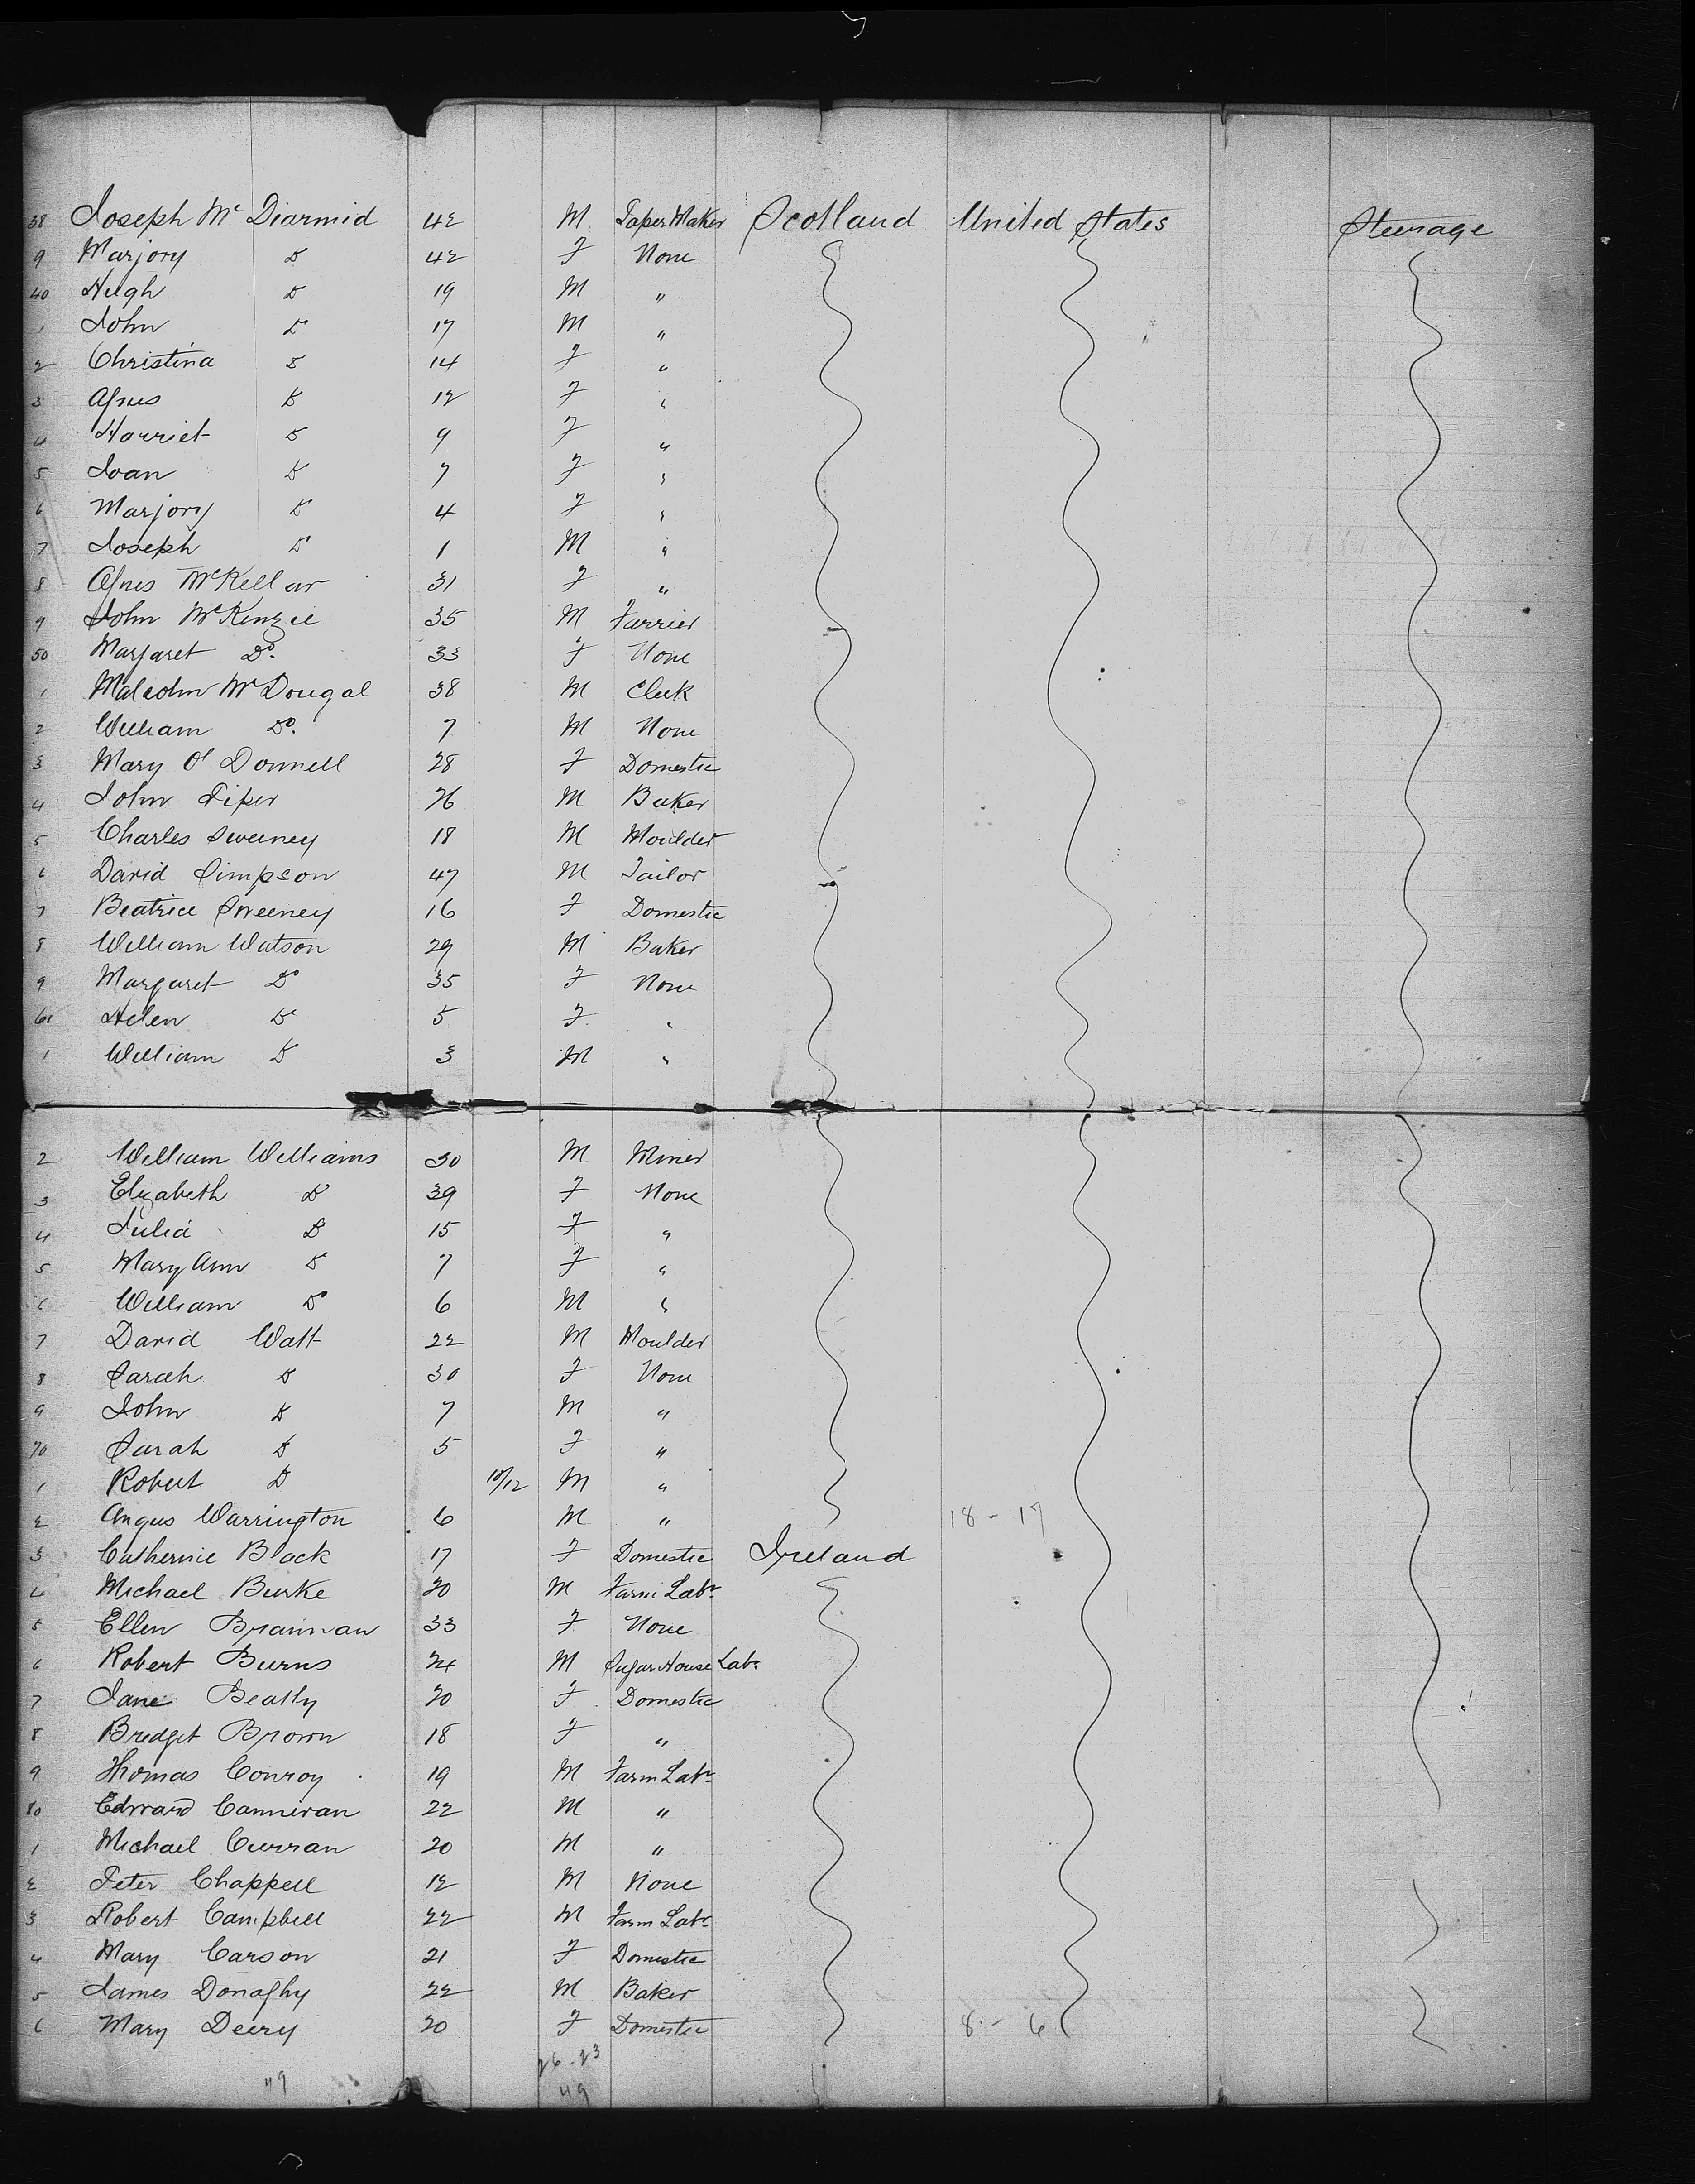 38 Joseph Mc Diarmid 42 M. Paper Maker Scotland United States Steerage
9 Marjory Do 42 F None
40 Hugh Do 19 M "
1 John Do 17 M "
2 Christina Do 14 F "
3 Agnes Do 12 F "
4 Harriet Do 9 F "
5 Joan Do 7 F "
6 Marjory Do 4 F "
7 Joseph Do 1 M "
8 Agnes McKellar 31 F "
9 John McKenzie 35 M Farrier
50 Margaret Do. 33 F None
1 Malcolm McDougal 38 M Clerk
2 William Do. 7 M None
3 Mary O'Donnell 28 F Domestic
4 John Piper 26 M Baker
5 Charles Sweeney 18 M Moulder
6 David Simpson 47 M Tailor
7 Beatrice Sweeney 16 F Domestic
8 William Watson 29 M Baker
9 Margaret Do 35 F None
60 Helen Do 5 F "
1 William Do 3 M "
2 William Williams 30 M Miner
3 Elizabeth Do 39 F None
4 Julia Do 15 F "
5 Mary Ann Do 7 F "
6 William Do 6 M "
7 David Watt 22 M Moulder
8 Sarah Do 30 F None
9 John Do 7 M "
70 Sarah Do 5 F "
1 Robert Do 10/12 M "
2 Angus Warrington 6 M " 18 - 17
3 Catherine Black 17 F Domestic Ireland
4 Michael Burke 20 M Farm Labr
5 Ellen Brannan 33 F None
6 Robert Burns 24 M Sugar House Labr
7 Jane Beatty 20 F Domestic
8 Bridget Brown 18 F "
9 Thomas Conroy 19 M Farm Labr
80 Edward Cannivan 22 M "
1 Michael Curran 20 M "
2 Peter Chappell 12 M None
3 Robert Campbell 22 M Farm Labr
4 Mary Carson 21 F Domestic
5 James Donaghy 22 M Baker
6 Mary Deery 20 F Domestic 8 - 6
26 - 23
49 49